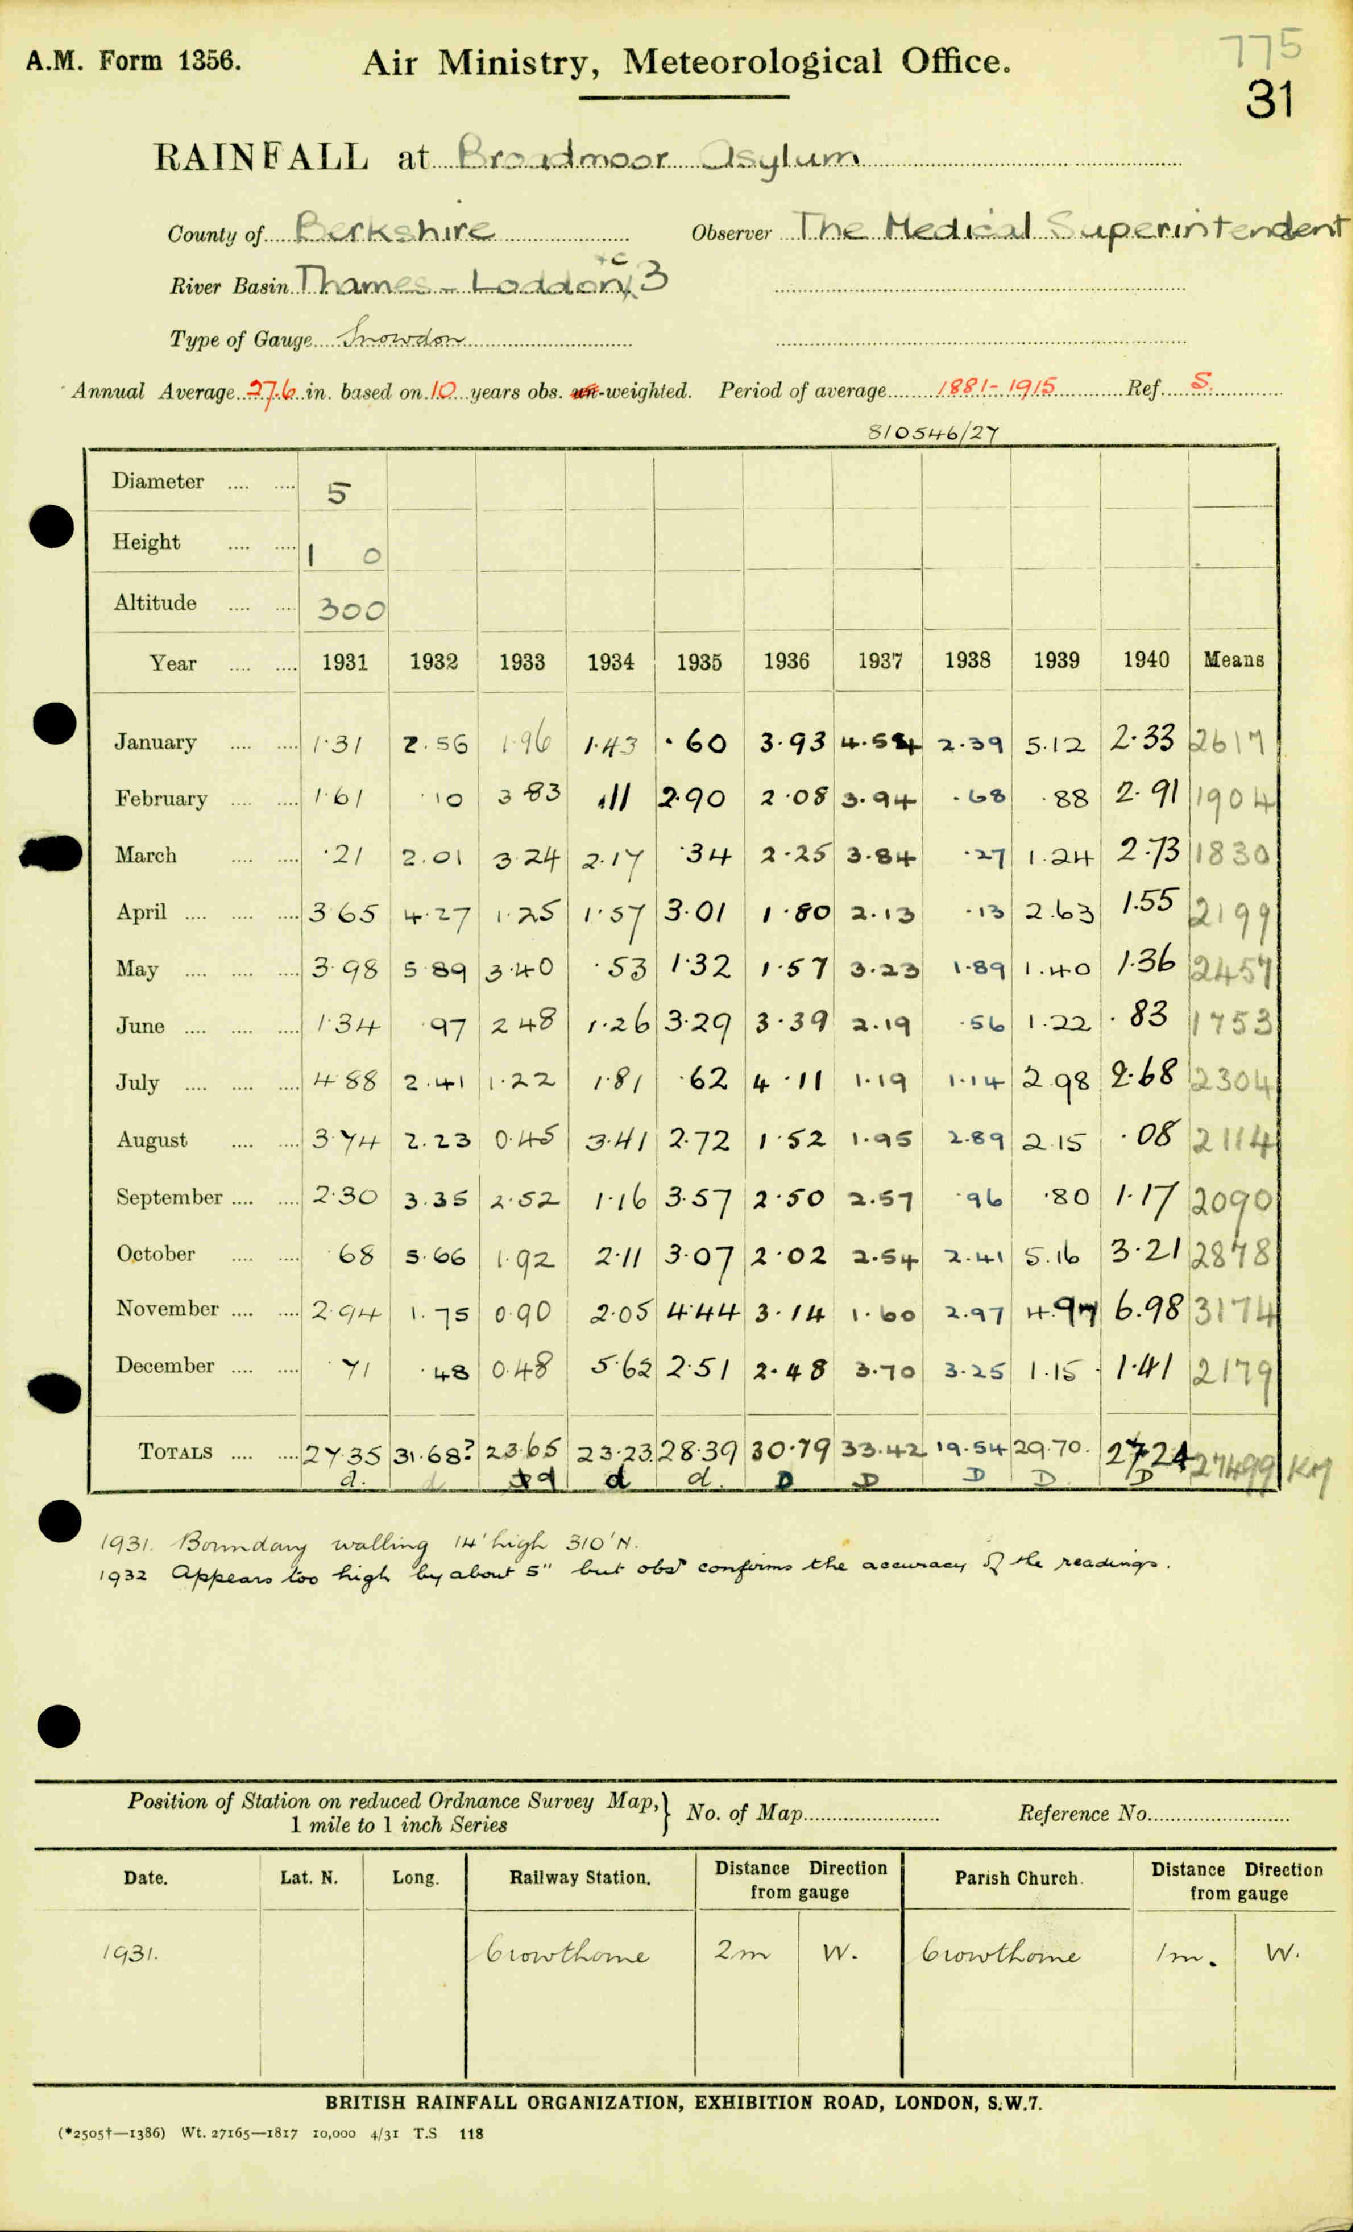 775
A.M. Form 1356. Air Ministry, Meteorological Office.
31
RAINFALL at Broadmoor Asylum
County of Berkshire Observer The Medical Superintendent
River Basin Thames - Loddon 3
Type of Gauge Snowdon
Annual Average 27.6 in. based on 10 years obs. un-weighted. Period of average 1881-1915 Ref. S.
810546/27
Diameter .... .... 5
Height .... .... 1 0
Altitude .... .... 300
Year .... .... 1931 1932 1933 1934 1935 1936 1937 1938 1939 1940 Means
January .... .... 1.31 2.56 1.96 1.43 .60 3.93 4.54 2.39 5.12 2.33 2617
February .... .... 1.61 .10 3 83 .11 2.90 2.08 3.94 .68 .88 2.91 1904
March .... .... .21 2.01 3 24 2.17 .34 2.25 3.84 .27 1.24 2.73 1830
April .... .... .... 3 65 4.27 1.25 1.57 3.01 1.80 2.13 .13 2.63 1.55 2199
May .... .... .... 3.98 5.89 3.40 .53 1.32 1.57 3.23 1.89 1.40 1.36 2457
June .... .... .... 1.34 .97 2 48 1.26 3.29 3.39 2.19 .56 1.22 .83 1753
July .... .... .... 4 88 2.41 1.22 1.81 .62 4.11 1.19 1.14 2.98 2.68 2304
August .... .... 3.74 2.23 0.45 3.41 2.72 1.52 1.95 2.89 2.15 .08 2114
September .... .... 2.30 3.35 2.52 1.16 3.57 2.50 2.57 .96 .80 1.17 2090
October .... .... 68 5.66 1.92 2.11 3.07 2.02 2.54 2.41 5.16 3.21 2878
November .... .... 2.94 1.75 0.90 2.05 4.44 3.14 1.60 2.97 4.97 6.98 3174
December .... .... 71 .48 0.48 5.62 2.51 2.48 3.70 3.25 1.15 1.41 2179
TOTALS .... .... 27.35 31.68? 23.65 23.23 28.39 30.79 33.42 19.54 29.70 27.24 27499 KM
d. d d d d. D D D D D
1931. Boundary walling 14' high 310' N.
1932 Appears too high by about 5" but obsr confirms the accuracy of the readings.
Position of Station on reduced Ordnance Survey Map,} No. of Map Reference No.
1 mile to 1 inch Series
Date. Lat. N. Long. Railway Station. Distance Direction from gauge Parish Church. Distance Direction from gauge
1931. Crowthorne 2m W. Crowthorne 1m. W.
BRITISH RAINFALL ORGANIZATION, EXHIBITION ROAD, LONDON, S.W.7.
(*2505†—1386) Wt. 27165—1817 10,000 4/31 T.S 118